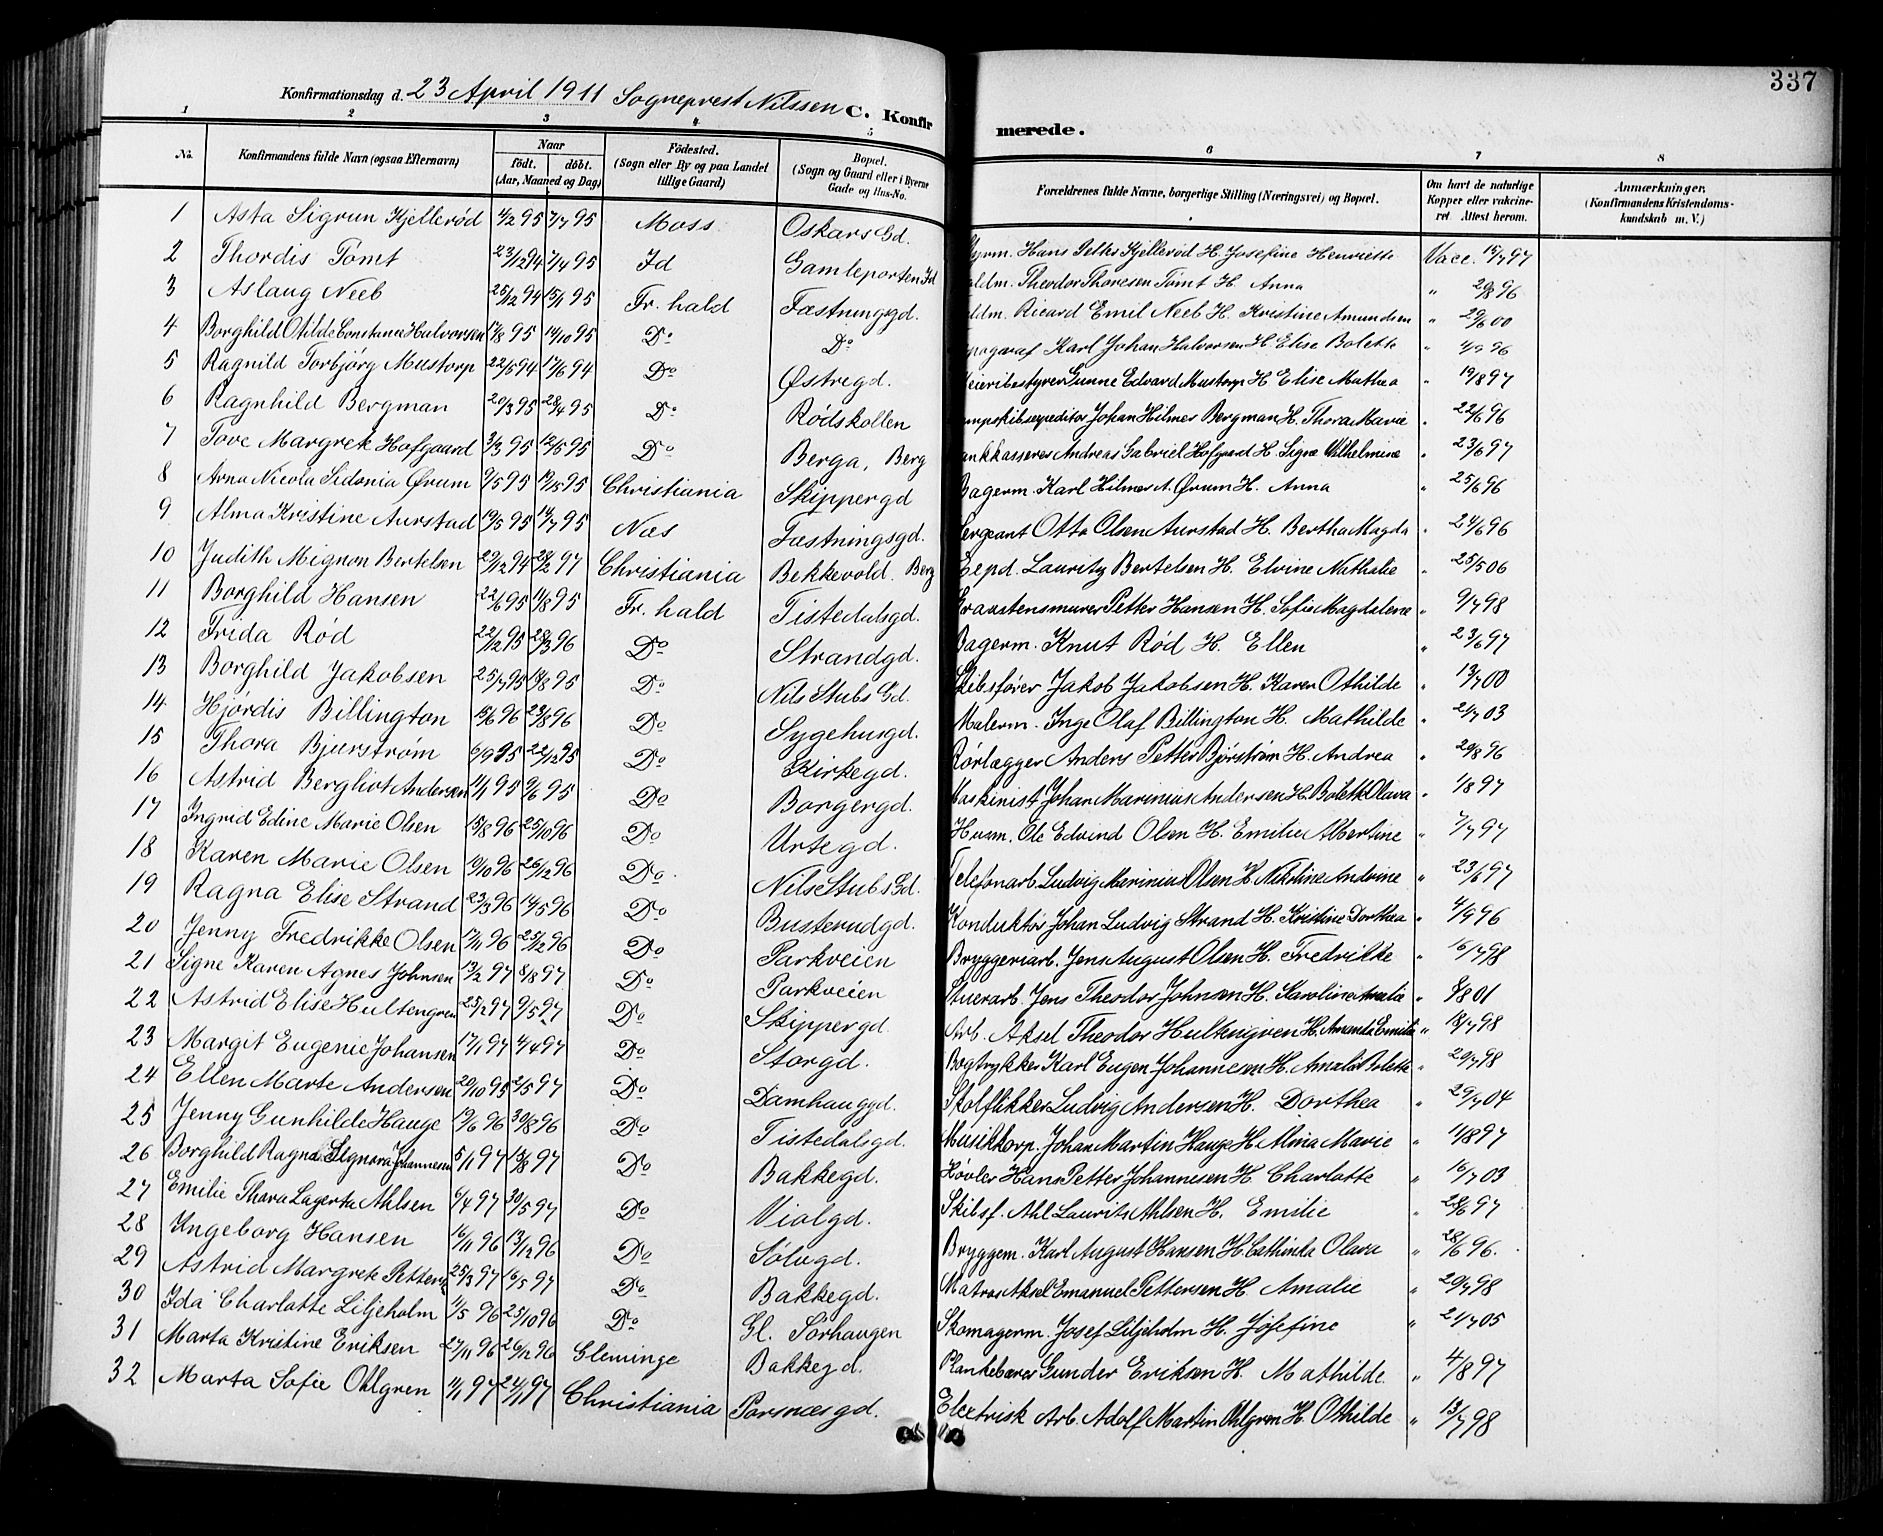 337
Konfirmationsdag d. 23 April 1911 Sogneprest Nilssen C. Konfirmerede.
1 2 3 4 5 6 7 8
No. Konfirmandens fulde Navn (ogsaa Efternavn) Naar født. døbt. (Aar, Maaned og Dag) Födested. (Sogn eller By og paa Landet tillige Gaard) Bopæl. (Sogn og Gaard eller i Byerne Gade og Hus-No. Forældrenes fulde Navne, borgerlige Stilling (Næringsvei) og Bopæl. Om havt de naturlige Kopper eller vakcineret. Attest herom. Anmærkninger. (Konfirmandens Kristendomskundskab m. V.)
1 Asta Sigrun Kjellerød 4/2 95 7/7 95 Moss Oskars Gd. Hans Petter Kjellerød H. Josefine Henriette Vacc. 15/7 97
2 Thordis Tømt 23/12 94 7/4 95 Id Gamleporten Id Theodor Thoresen Tømt H. Anna " 20/8 96
3 Aslaug Neeb 25/12 94 Fr. hald Fæstningsgd. Ricard Emil Neeb H. Kristine Amundsen " 29/6 00
4 Borghild Otilde Constance Halvorsen 17/8 95 14/10 95 Do Do Karl Johan Halvorsen H. Elise Bolette " 4/9 96
5 Ragnild Torbjørg Mustorp 22/5 94 17/6 94 Do Østregd. Gunne Edvard Mustorp H. Elise Mathea " 19/8 97
6 Ragnhild Bergman 20/3 95 28/4 95 Do Rødskollen Johan Hilmer Bergman H. Thora Marie " 22/6 96
7 Tove Margrete Hofgaard 3/3 95 12/5 95 Do Berga, Berg Andreas Gabriel Hofgaard H. Signe Vilhelmine " 23/6 97
8 Arna Nicola Sidonia Ørum 9/5 95 Christiania Skippergd Bagerm. Karl Hilmer A. Ørum H. Anna " 25/6 96
9 Alma Kristine Aurstad 19/5 95 14/7 95 Næs Fæstningsgd. Sergeant Otto Olsen Aurstad H. Bertha Magda " 24/6 96
10 Judith Mignon Bertelsen 29/12 94 28/2 97 Christiania Bekkevold. Berg Expd. Lauritz Bertelsen H. Elvine Nathalie " 25/5 06
11 Borghild Hansen 22/6 95 11/8 95 Fr. hald Tistedalsgd. Graastensmurer Petter Hansen H. Sofie Magdalene " 9/7 98
12 Frida Rød 22/12 95 29/3 96 Do Strandgd. Bagerm. Knut Rød H. Ellen " 23/6 97
13 Borghild Jakobsen 25/7 95 18/8 95 Do Nils Stubs Gd. Skibsfører Jakob Jakobsen H. Karen Othilde " 13/7 00
14 Hjørdis Billington 15/6 96 23/8 96 Do Sygehusgd. Malerm. Inge Olaf Billington H. Mathilde " 21/7 03
15 Thora Bjurstrøm 6/9 95 22/12 95 Do Kirkegd. Rørlægger Anders Petter Bjørstrøm H. Andrea " 29/8 96
16 Astrid Bergliot Andersen 11/1 95 9/6 95 Do Borgergd. Maskinist Johan Marinius Andersen H. Bolette Olava " 1/8 97
17 Ingrid Edine Marie Olsen 15/8 96 25/10 96 Do Urtegd. Husm. Ole Edvind Olsen H. Emilie Albertine " 7/7 97
18 Karen Marie Olsen 19/10 96 26/12 96 Do Nils Stubs Gd. Telefonarb. Ludvig Marinius Olsen H. Nikoline Andrine " 23/6 97
19 Ragna Elise Strand 23/3 96 14/5 96 Do Busterudgd. Konduktør Johan Ludvig Strand H. Kristine Dorthea " 4/9 96
20 Jenny Fredrikke Olsen 17/11 96 25/12 96 Do Parkveien Bryggeriarb. Jens August Olsen H. Fredrikke " 16/7 98
21 Signe Karen Agnes Johnsen 13/2 97 8/8 97 Do Parkveien Stuerarb. Jens Theodor Johnsen H. Karoline Amalie " 8/8 01
22 Astrid Elise Hultengren 25/2 97 9/5 97 Do Skippergd. Arb. Aksel Theodor Hultengren H. Amanda Emilie " 18/7 98
23 Margit Eugenie Johansen 17/1 97 4/4 97 Do Storgd. Bogtrykker Karl Eugen Johannesen H. Amalie Bolette " 20/7 98
24 Ellen Marte Andersen 20/10 95 2/5 97 Do Damhauggd. Skolflikker Ludvig Andersen H. Dorthea " 29/7 04
25 Jenny Gunhilde Hauge 19/6 96 30/8 96 Do Tistedalsgd. Musikkorp. Johan Martin Hauge H. Alma Marie " 11/8 97
26 Borghild Ragna Signora Johannesen 5/1 97 15/8 97 Do Bakkegd. Høvler Hans Petter Johannesen H. Charlotte " 16/7 03
27 Emilie Thora Lagerta Ahlsen 6/4 97 30/5 97 Do Violgd. Skibsf. Ahl Laurits Ahlsen H. Emilie " 28/6 97
28 Ingeborg Hansen 16/11 96 13/12 96 Do Sølvgd. Bryggem. Karl August Hansen H. Cathinka Olava " 28/6 96.
29 Astrid Margrete Petters 25/3 97 16/5 97 Do Bakkegd. Matros Aksel Emanuel Pettersen H. Amalie " 20/7 98
30 Ida Charlotte Liljeholm 11/5 96 25/10 96 Do Gl. Sørhaugen Skomagerm. Josef Liljeholm H. Josefine " 21/7 05
31 Marta Kristine Eriksen 27/11 96 26/12 96 Gleminge Bakkegd. Plankebærer Gunder Eriksen H. Mathilde. " 4/8 97
32 Marta Sofie Ohlgren 1/1 97 21/1 97 Christiania Porsnæsgd. Elextrisk Arb. Adolf Martin Ohlgren H. Othilde " 13/7 98